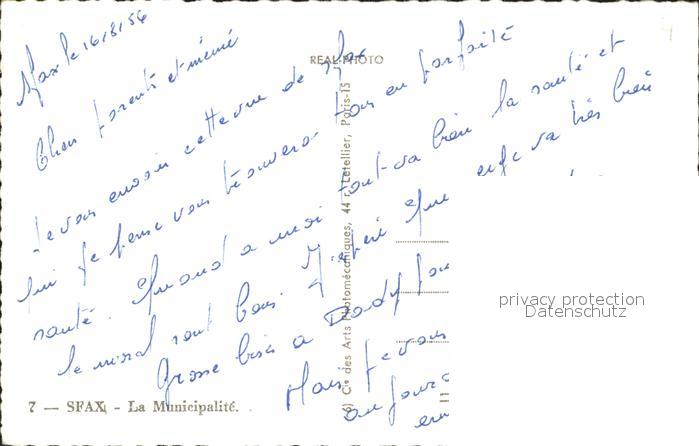 Sfax le 16/8/56
REAL PHOTO
Chers parents et mémé
Je vous envoie cette vue de Sfax
qui je pense vous trouvera tous en parfaite
santé. Quand a moi tout va bien la santé et
le moral sont bons. J'espère que va très bien
Grosse bise a Dady
Mais je vous
aujourd
6) Cie des Arts Photomécaniques, 44 r. Letellier, Paris-15
privacy protection
Datenschutz
7 — SFAX - La Municipalité.